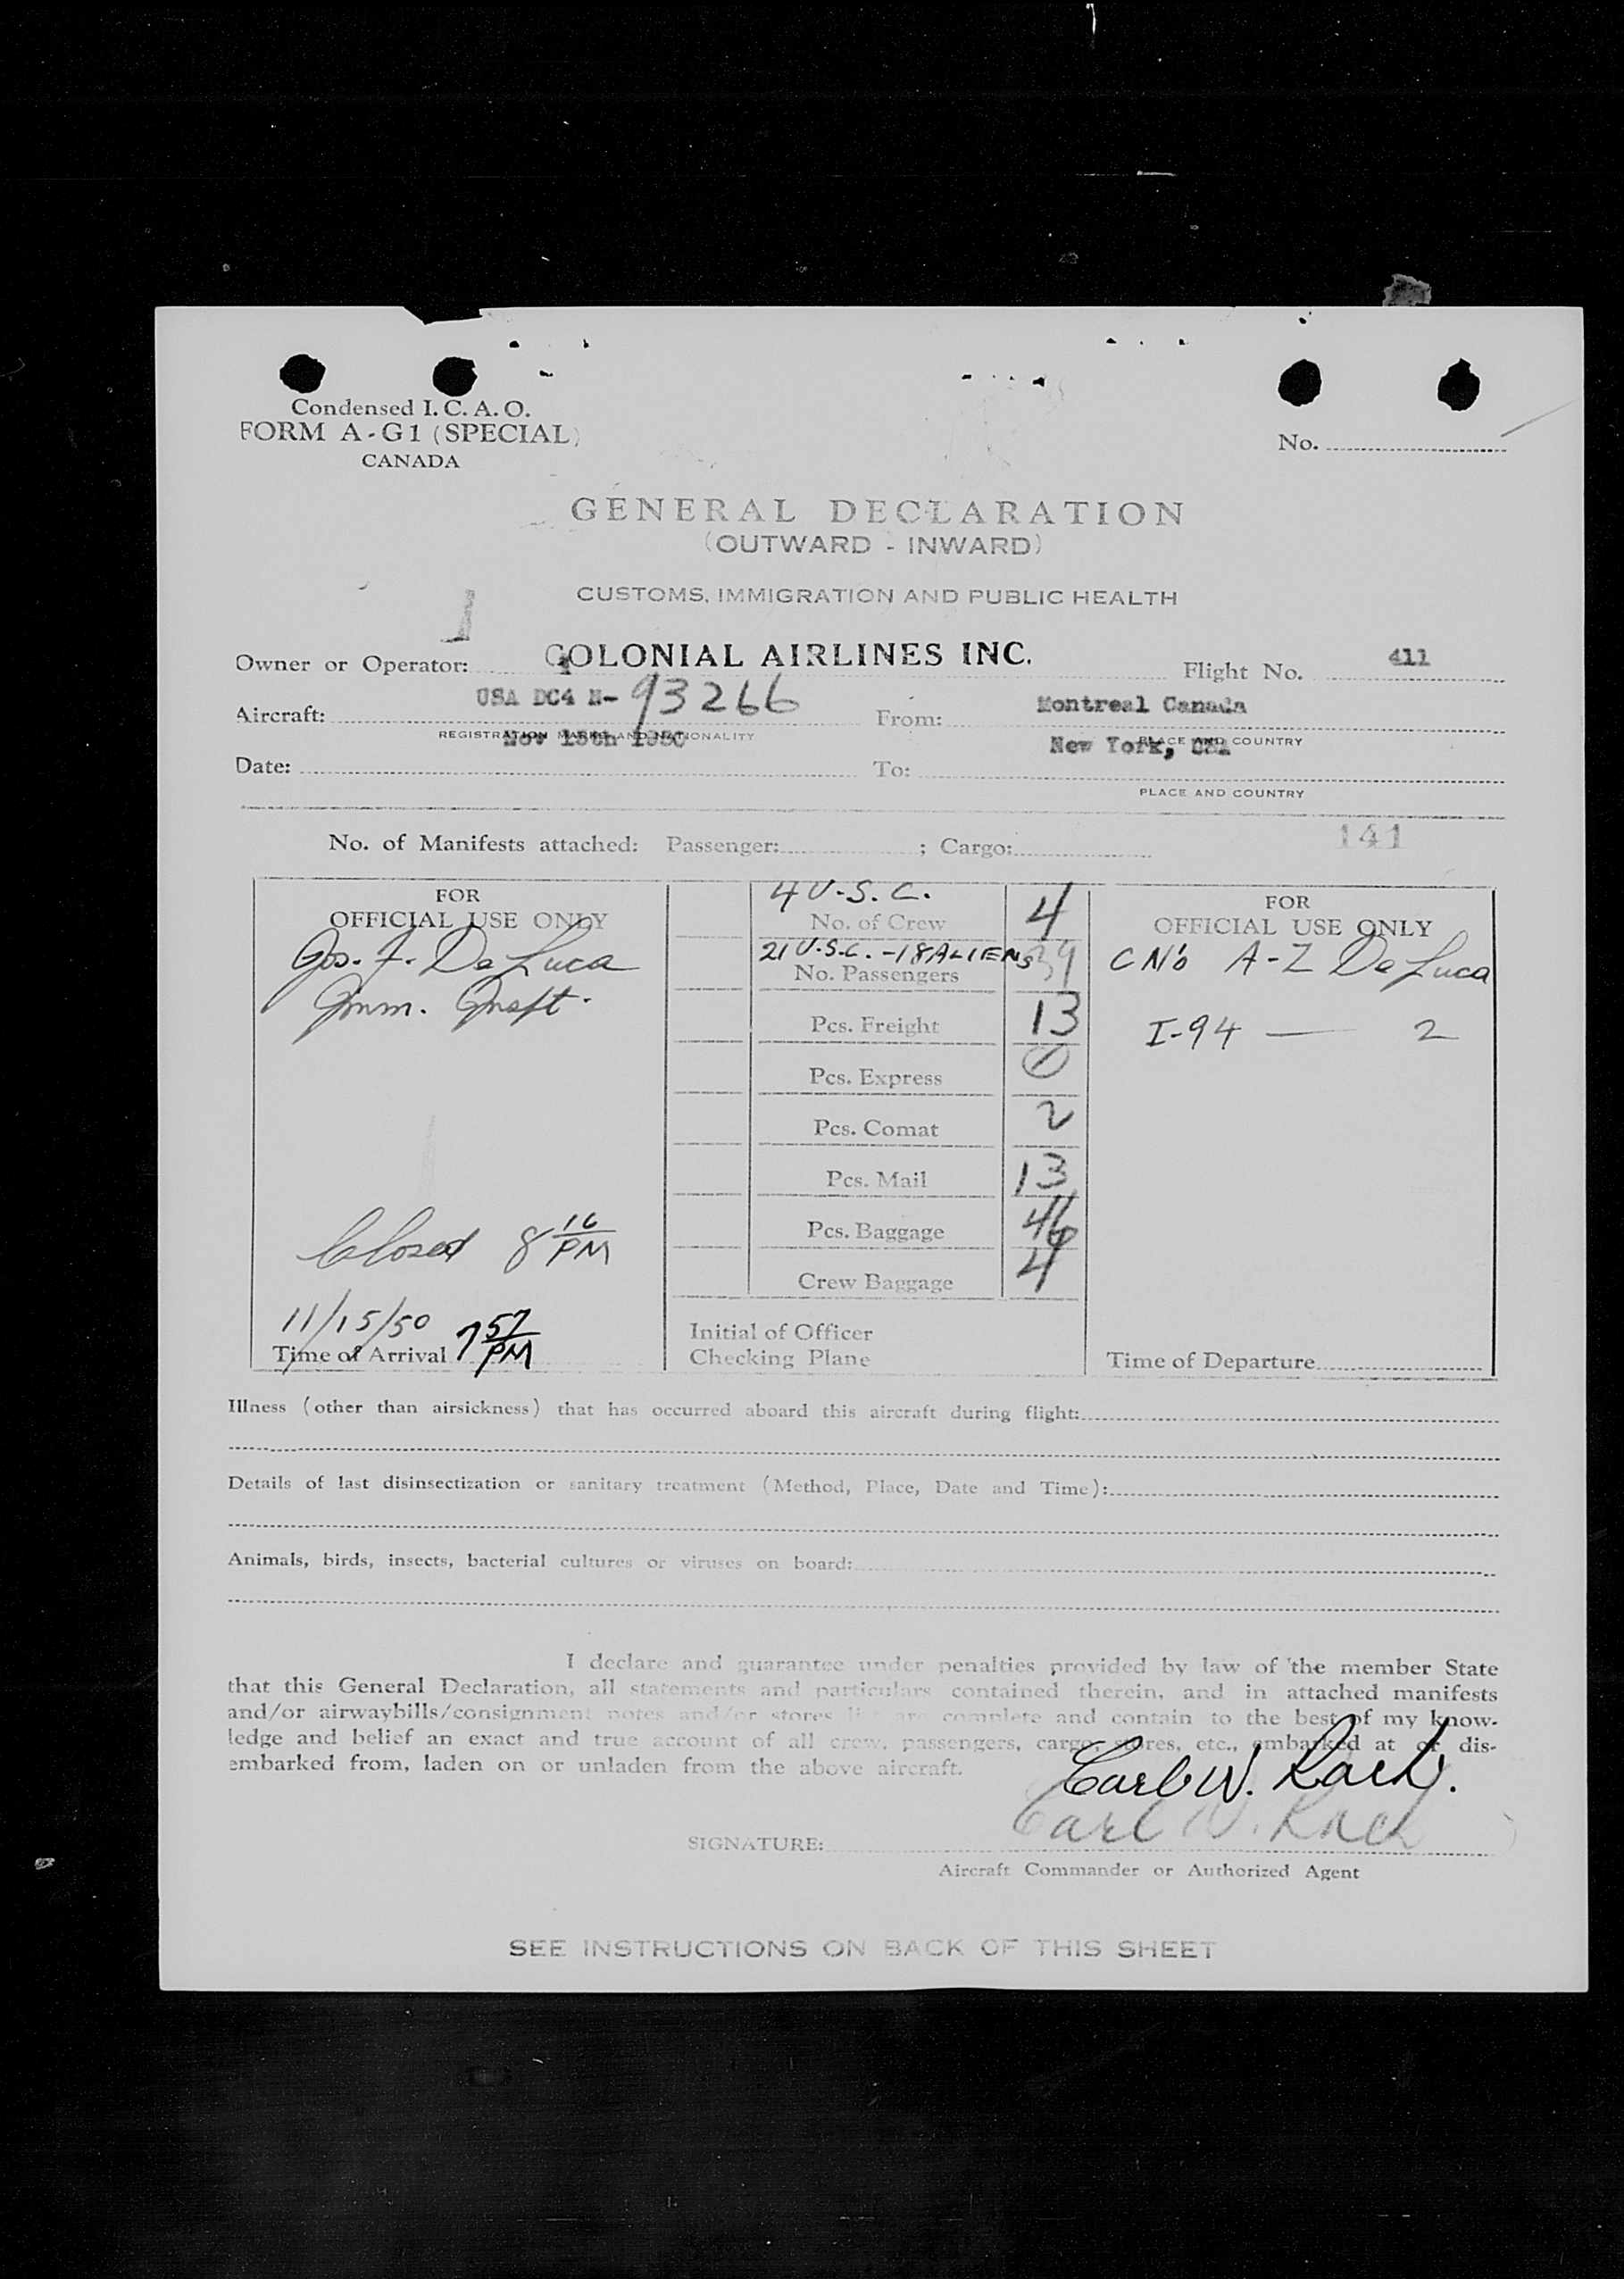 Condensed I. C. A. O.
FORM A-G1 (SPECIAL)
CANADA
No.
GENERAL DECLARATION
(OUTWARD - INWARD)
CUSTOMS, IMMIGRATION AND PUBLIC HEALTH
1
Owner or Operator: COLONIAL AIRLINES INC. Flight No. 411
Aircraft: USA DC4 N- 93266 From: Montreal Canada
REGISTRATION MARKS AND NATIONALITY PLACE AND COUNTRY
Date: Nov 15th 1950 To: New York, USA
PLACE AND COUNTRY
No. of Manifests attached: Passenger: ; Cargo: 141
FOR
OFFICIAL USE ONLY
Jos. F. De Luca
Imm. Inspt.
Closed 8 16 PM
11/15/50 7 57 PM
Time of Arrival
4 U.S.C.
No. of Crew 4
21 U.S.C. - 18 ALIENS
No. Passengers 39
Pcs. Freight 13
Pcs. Express 0
Pcs. Comat 2
Pcs. Mail 13
Pcs. Baggage 46
Crew Baggage 4
Initial of Officer
Checking Plane
FOR
OFFICIAL USE ONLY
CN's A-Z De Luca
I-94 — 2
Time of Departure
Illness (other than airsickness) that has occurred aboard this aircraft during flight:
Details of last disinsectization or sanitary treatment (Method, Place, Date and Time):
Animals, birds, insects, bacterial cultures or viruses on board:
I declare and guarantee under penalties provided by law of the member State
that this General Declaration, all statements and particulars contained therein, and in attached manifests
and/or airwaybills/consignment notes and/or stores list are complete and contain to the best of my know-
ledge and belief an exact and true account of all crew, passengers, cargo, stores, etc., embarked at or dis-
embarked from, laden on or unladen from the above aircraft.
Carl W.
Carl W.
SIGNATURE:
Aircraft Commander or Authorized Agent
SEE INSTRUCTIONS ON BACK OF THIS SHEET